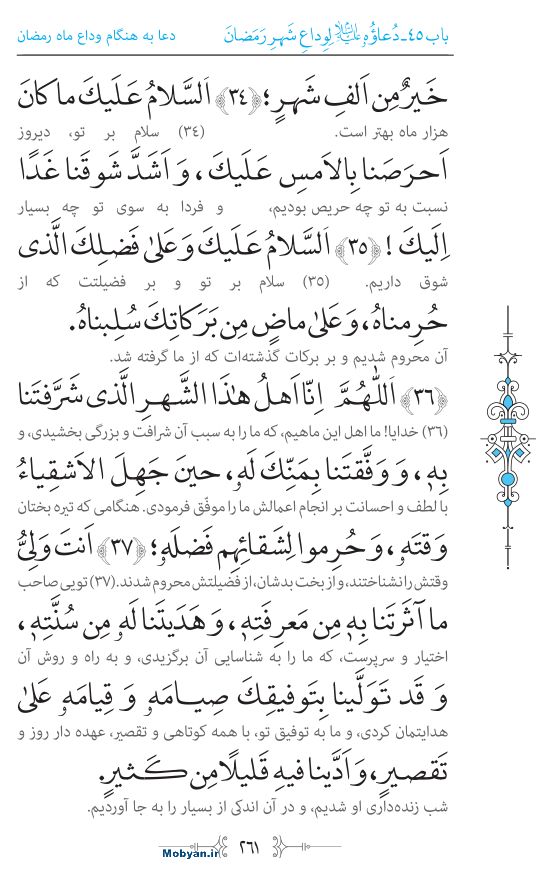 باب ٤٥-دُعاؤُهُ عَلَيْهِ السَّلَامُ لِوِداعِ شَهرِ رَمَضانَ
دعا به هنگام وداع ماه رمضان
خَيرٌ مِن اَلفِ شَهرٍ؛ ﴿٣٤﴾ اَلسَّلامُ عَلَيكَ ما كانَ
هزار ماه بهتر است. (٣٤) سلام بر تو، دیروز
اَحرَصَنا بِالاَمسِ عَلَيكَ، وَ اَشَدَّ شَوقَنا غَدًا
نسبت به تو چه حریص بودیم، و فردا به سوی تو چه بسیار
اِلَيكَ! ﴿٣٥﴾ اَلسَّلامُ عَلَيكَ وَ عَلىٰ فَضلِكَ الَّذى
شوق داریم. (٣٥) سلام بر تو و بر فضیلتت که از
حُرِمناهُ، وَ عَلىٰ ماضٍ مِن بَرَكاتِكَ سُلِبناهُ.
آن محروم شدیم و بر برکات گذشته‌ات که از ما گرفته شد.
﴿٣٦﴾ اَللّٰهُمَّ اِنّا اَهلُ هٰذَا الشَّهرِ الَّذى شَرَّفتَنا
(٣٦) خدایا! ما اهل این ماهیم، که ما را به سبب آن شرافت و بزرگی بخشیدی، و
بِهِ، وَ وَفَّقتَنا بِمَنِّكَ لَهُ، حينَ جَهِلَ الاَشقِياءُ
با لطف و احسانت بر انجام اعمالش ما را موفّق فرمودی. هنگامی که تیره بختان
وَقتَهُ، وَ حُرِموا لِشَقائِهِم فَضلَهُ؛ ﴿٣٧﴾ اَنتَ وَلِىُّ
وقتش را نشناختند، و از بخت بدشان، از فضیلتش محروم شدند. (٣٧) تویی صاحب
ما آثَرتَنا بِهِ مِن مَعرِفَتِهِ، وَ هَدَيتَنا لَهُ مِن سُنَّتِهِ،
اختیار و سرپرست، که ما را به شناسایی آن برگزیدی، و به راه و روش آن
وَ قَد تَوَلَّينا بِتَوفيقِكَ صِيامَهُ وَ قِيامَهُ عَلىٰ
هدایتمان کردی، و ما به توفیق تو، با همه کوتاهی و تقصیر، عهده دار روز و
تَقصيرٍ، وَ اَدَّينا فيهِ قَليلًا مِن كَثيرٍ.
شب زنده‌داری او شدیم، و در آن اندکی از بسیار را به جا آوردیم.
٢٦١
Mobyan.ir